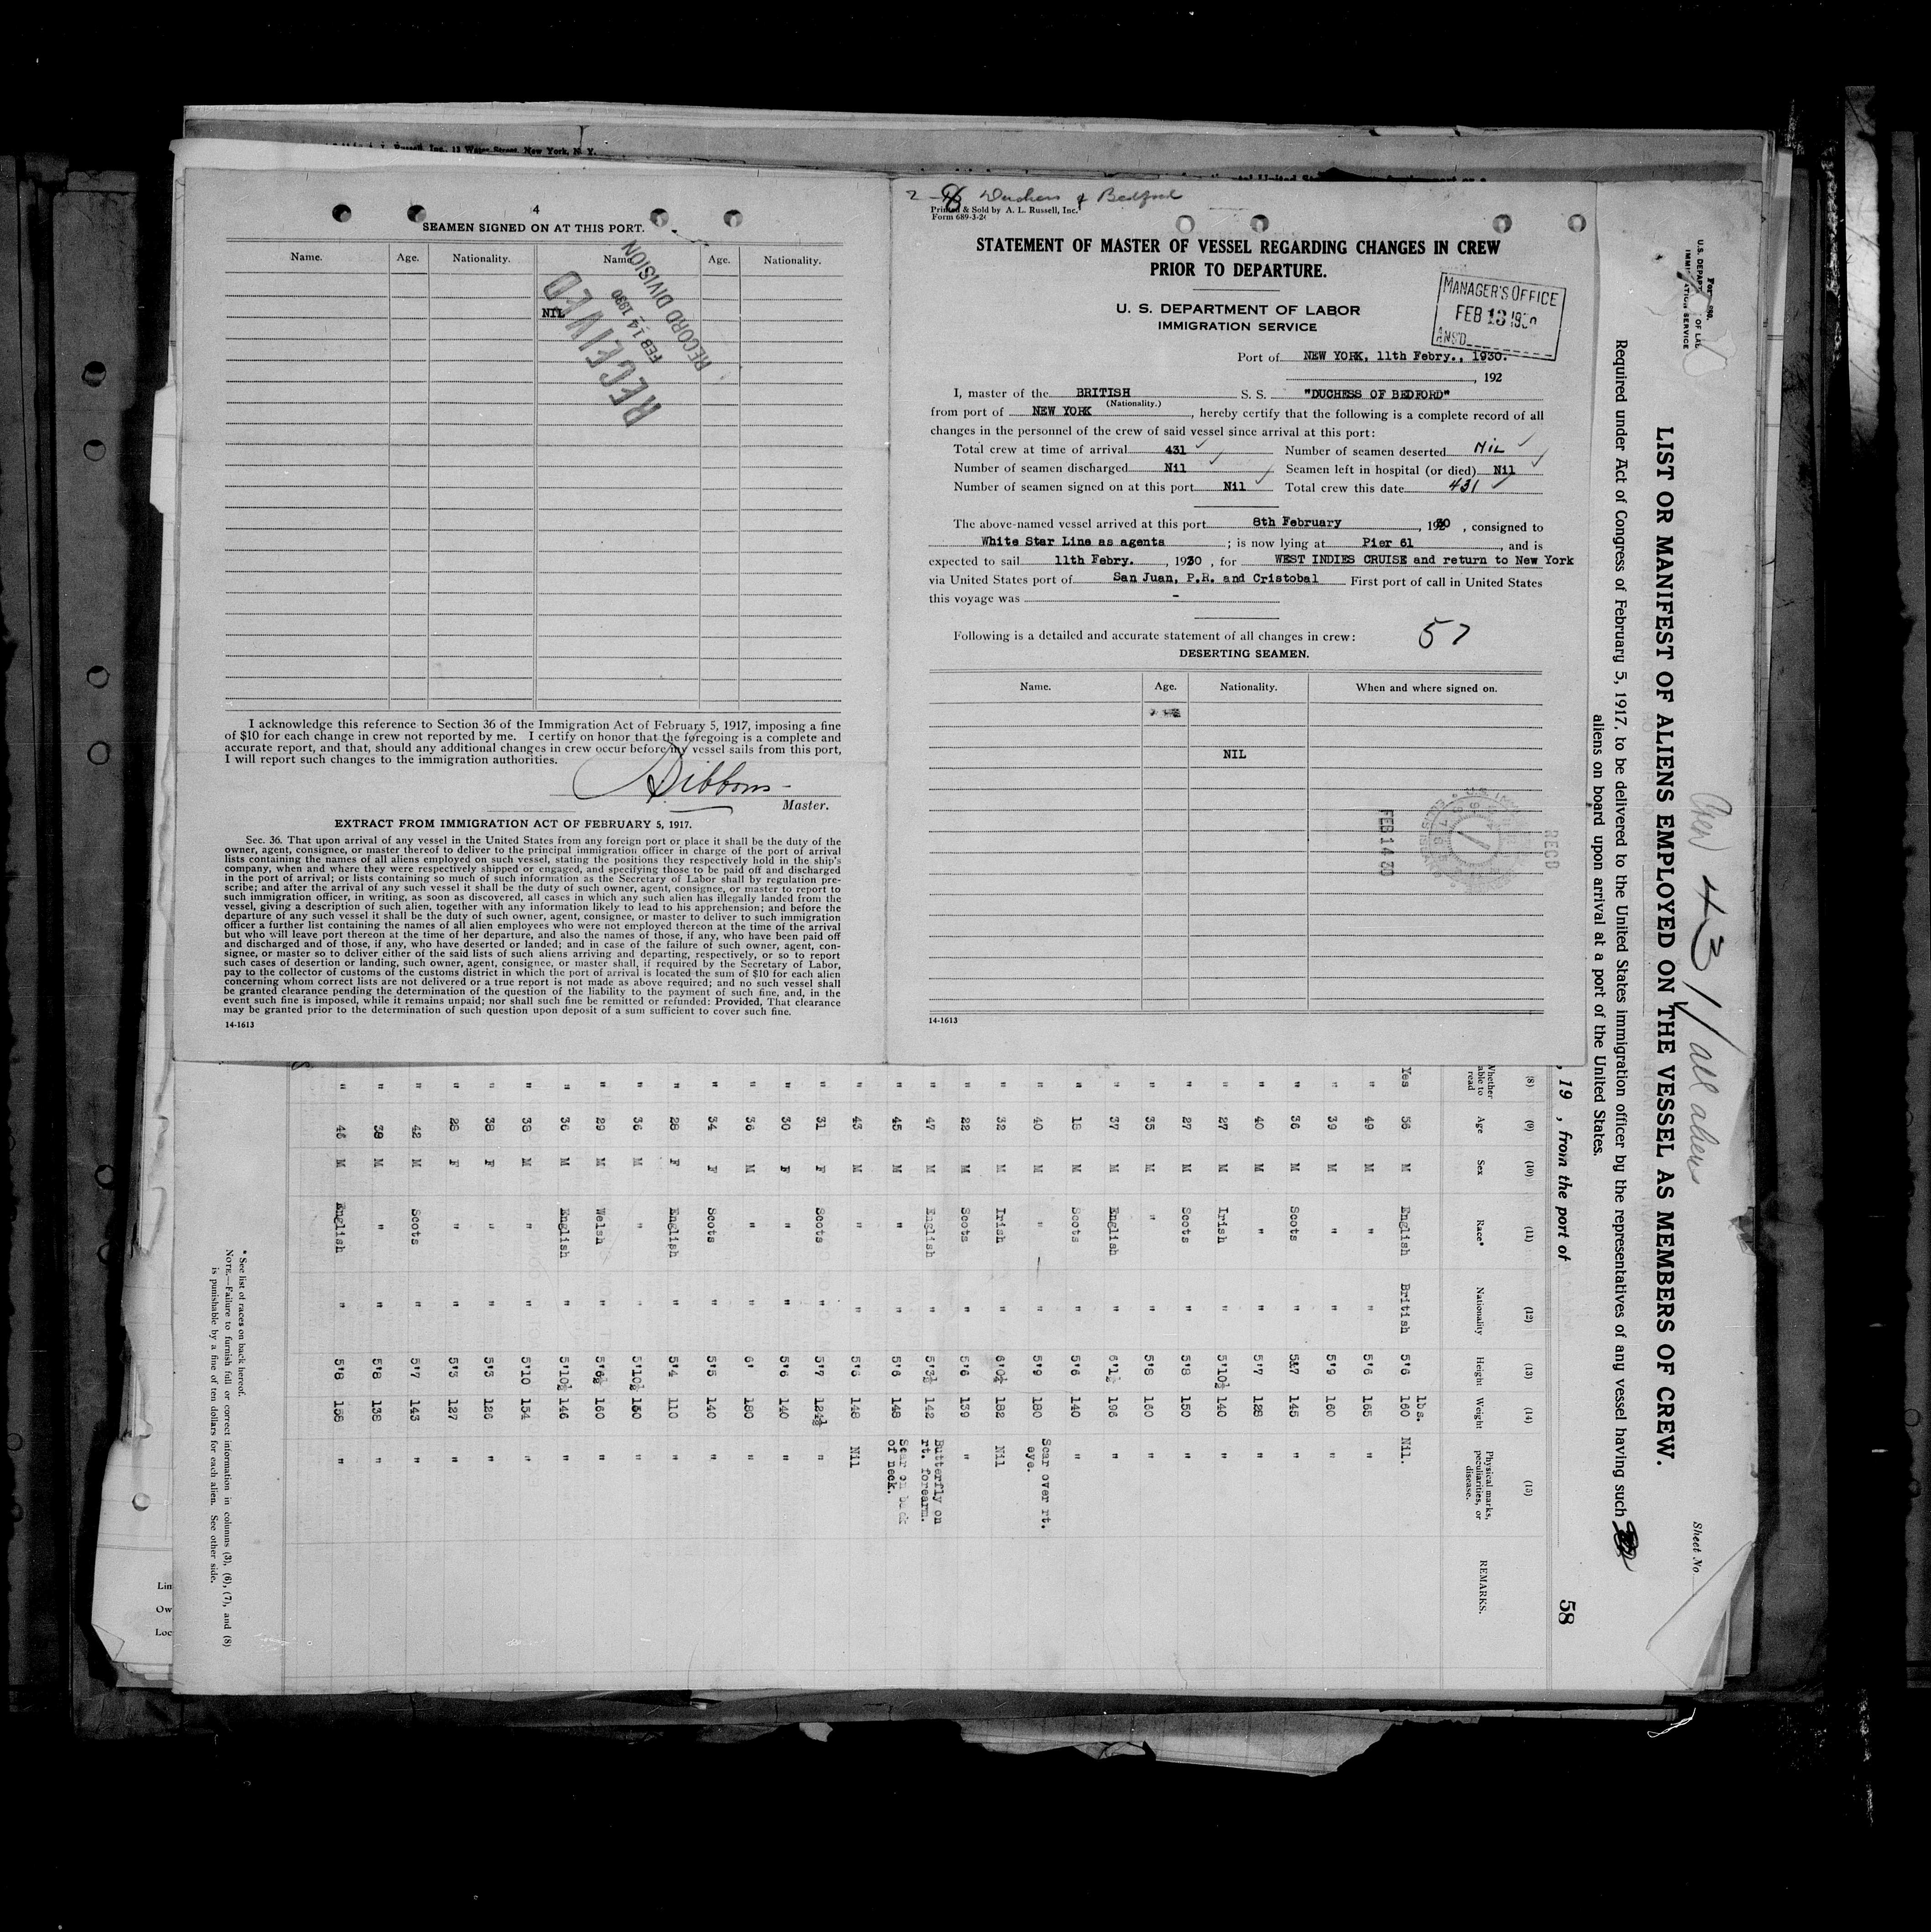 Russell, Inc., 13 Water Street, New York, N. Y.
4
SEAMEN SIGNED ON AT THIS PORT.
Name. Age. Nationality. Name. Age. Nationality.
NIL
RECEIVED
FEB 14 1930
RECORD DIVISION
I acknowledge this reference to Section 36 of the Immigration Act of February 5, 1917, imposing a fine
of $10 for each change in crew not reported by me. I certify on honor that the foregoing is a complete and
accurate report, and that, should any additional changes in crew occur before my vessel sails from this port,
I will report such changes to the immigration authorities.
Gibbons
Master.
EXTRACT FROM IMMIGRATION ACT OF FEBRUARY 5, 1917.
Sec. 36. That upon arrival of any vessel in the United States from any foreign port or place it shall be the duty of the
owner, agent, consignee, or master thereof to deliver to the principal immigration officer in charge of the port of arrival
lists containing the names of all aliens employed on such vessel, stating the positions they respectively hold in the ship's
company, when and where they were respectively shipped or engaged, and specifying those to be paid off and discharged
in the port of arrival; or lists containing so much of such information as the Secretary of Labor shall by regulation pre-
scribe; and after the arrival of any such vessel it shall be the duty of such owner, agent, consignee, or master to report to
such immigration officer, in writing, as soon as discovered, all cases in which any such alien has illegally landed from the
vessel, giving a description of such alien, together with any information likely to lead to his apprehension; and before the
departure of any such vessel it shall be the duty of such owner, agent, consignee, or master to deliver to such immigration
officer a further list containing the names of all alien employees who were not employed thereon at the time of the arrival
but who will leave port thereon at the time of her departure, and also the names of those, if any, who have been paid off
and discharged and of those, if any, who have deserted or landed; and in case of the failure of such owner, agent, con-
signee, or master so to deliver either of the said lists of such aliens arriving and departing, respectively, or so to report
such cases of desertion or landing, such owner, agent, consignee, or master shall, if required by the Secretary of Labor,
pay to the collector of customs of the customs district in which the port of arrival is located the sum of $10 for each alien
concerning whom correct lists are not delivered or a true report is not made as above required; and no such vessel shall
be granted clearance pending the determination of the question of the liability to the payment of such fine, and, in the
event such fine is imposed, while it remains unpaid; nor shall such fine be remitted or refunded: Provided, That clearance
may be granted prior to the determination of such question upon deposit of a sum sufficient to cover such fine.
14-1613
Duchess of Bedford
Printed & Sold by A. L. Russell, Inc.
Form 689-3-26
STATEMENT OF MASTER OF VESSEL REGARDING CHANGES IN CREW
PRIOR TO DEPARTURE.
U. S. DEPARTMENT OF LABOR
IMMIGRATION SERVICE
MANAGER'S OFFICE
FEB 13 1930
ANS'D
Port of NEW YORK, 11th Febry., 1930.
, 192
I, master of the BRITISH S. S. "DUCHESS OF BEDFORD"
(Nationality.)
from port of NEW YORK, hereby certify that the following is a complete record of all
changes in the personnel of the crew of said vessel since arrival at this port:
Total crew at time of arrival 431 Number of seamen deserted NiL
Number of seamen discharged Nil Seamen left in hospital (or died) Nil
Number of seamen signed on at this port Nil Total crew this date 431
The above-named vessel arrived at this port 8th February, 1930, consigned to
White Star Line as agents; is now lying at Pier 61, and is
expected to sail 11th Febry., 1930, for WEST INDIES CRUISE and return to New York
via United States port of San Juan, P.R. and Cristobal First port of call in United States
this voyage was -
Following is a detailed and accurate statement of all changes in crew: 57
DESERTING SEAMEN.
Name. Age. Nationality. When and where signed on.
NIL
FEB 14 30
RECD
14-1613
U.S. DEPART OF LAB
IMMIGRATION SERVICE
431 / all aliens
Sheet No
LIST OR MANIFEST OF ALIENS EMPLOYED ON THE VESSEL AS MEMBERS OF CREW.
Required under Act of Congress of February 5, 1917, to be delivered to the United States immigration officer by the representatives of any vessel having such
aliens on board upon arrival at a port of the United States.
, 19 , from the port of
58
(8) (9) (10) (11) (12) (13) (14) (15)
Whether able to read Age Sex Race* Nationality Height Weight Physical marks, peculiarities, or disease. REMARKS.
lbs.
Yes 56 M English British 5'6 160 Nil.
" 49 M " " 5'6 165 "
" 39 M " " 5'9 160 "
" 36 M Scots " 5&7 145 "
" 40 M " " 5'7 128 "
" 27 M Irish " 5'10½ 140 "
" 27 M Scots " 5'8 150 "
" 35 M " " 5'8 160 "
" 37 M English " 6'1½ 196 "
" 18 M Scots " 5'6 140 "
" 40 M " " 5'9 180 Scar over rt. eye.
" 32 M Irish " 6'0½ 182 Nil
" 22 M Scots " 5'6 139 "
" 47 M English " 5'3½ 142 Butterfly on rt. forearm.
" 45 M " " 5'6 148 Scar on back of neck.
" 43 M " " 5'6 148 Nil
" 31 F Scots " 5'7 124½ "
" 30 F " " 5'6 140 "
" 36 M " " 6' 180 "
" 34 F Scots " 5'5 140 "
" 28 F English " 5'4 110 "
" 36 M " " 5'10½ 150 "
" 29 M Welsh " 5'6½ 160 "
" 36 M English " 5'10½ 146 "
" 38 M " " 5'10 154 "
" 38 F " " 5'3 126 "
" 28 F " " 5'3 127 "
" 42 M Scots " 5'7 143 "
" 39 M " " 5'8 138 "
" 46 M English " 5'8 158 "
* See list of races on back hereof.
NOTE.—Failure to furnish full or correct information in columns (3), (6), (7), and (8)
is punishable by a fine of ten dollars for each alien. See other side.
Lin
Ow
Loc